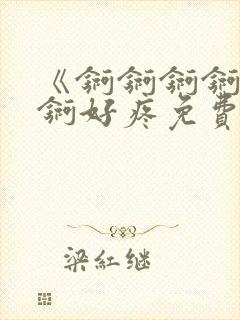 《锕锕锕锕
锕好疼免費
梁紅继